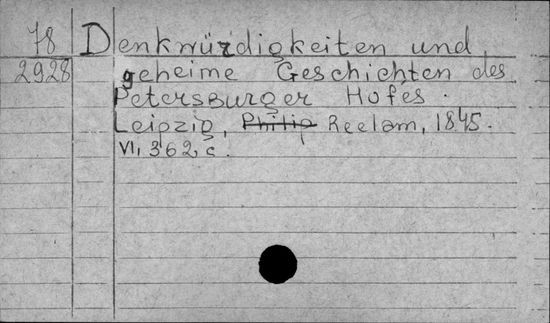 78 Denkwürdigkeiten und
2928 geheime Geschichten des
Petersburger Hofes.
Leipzig, Philip Reelam, 1845.
VI, 362, c.